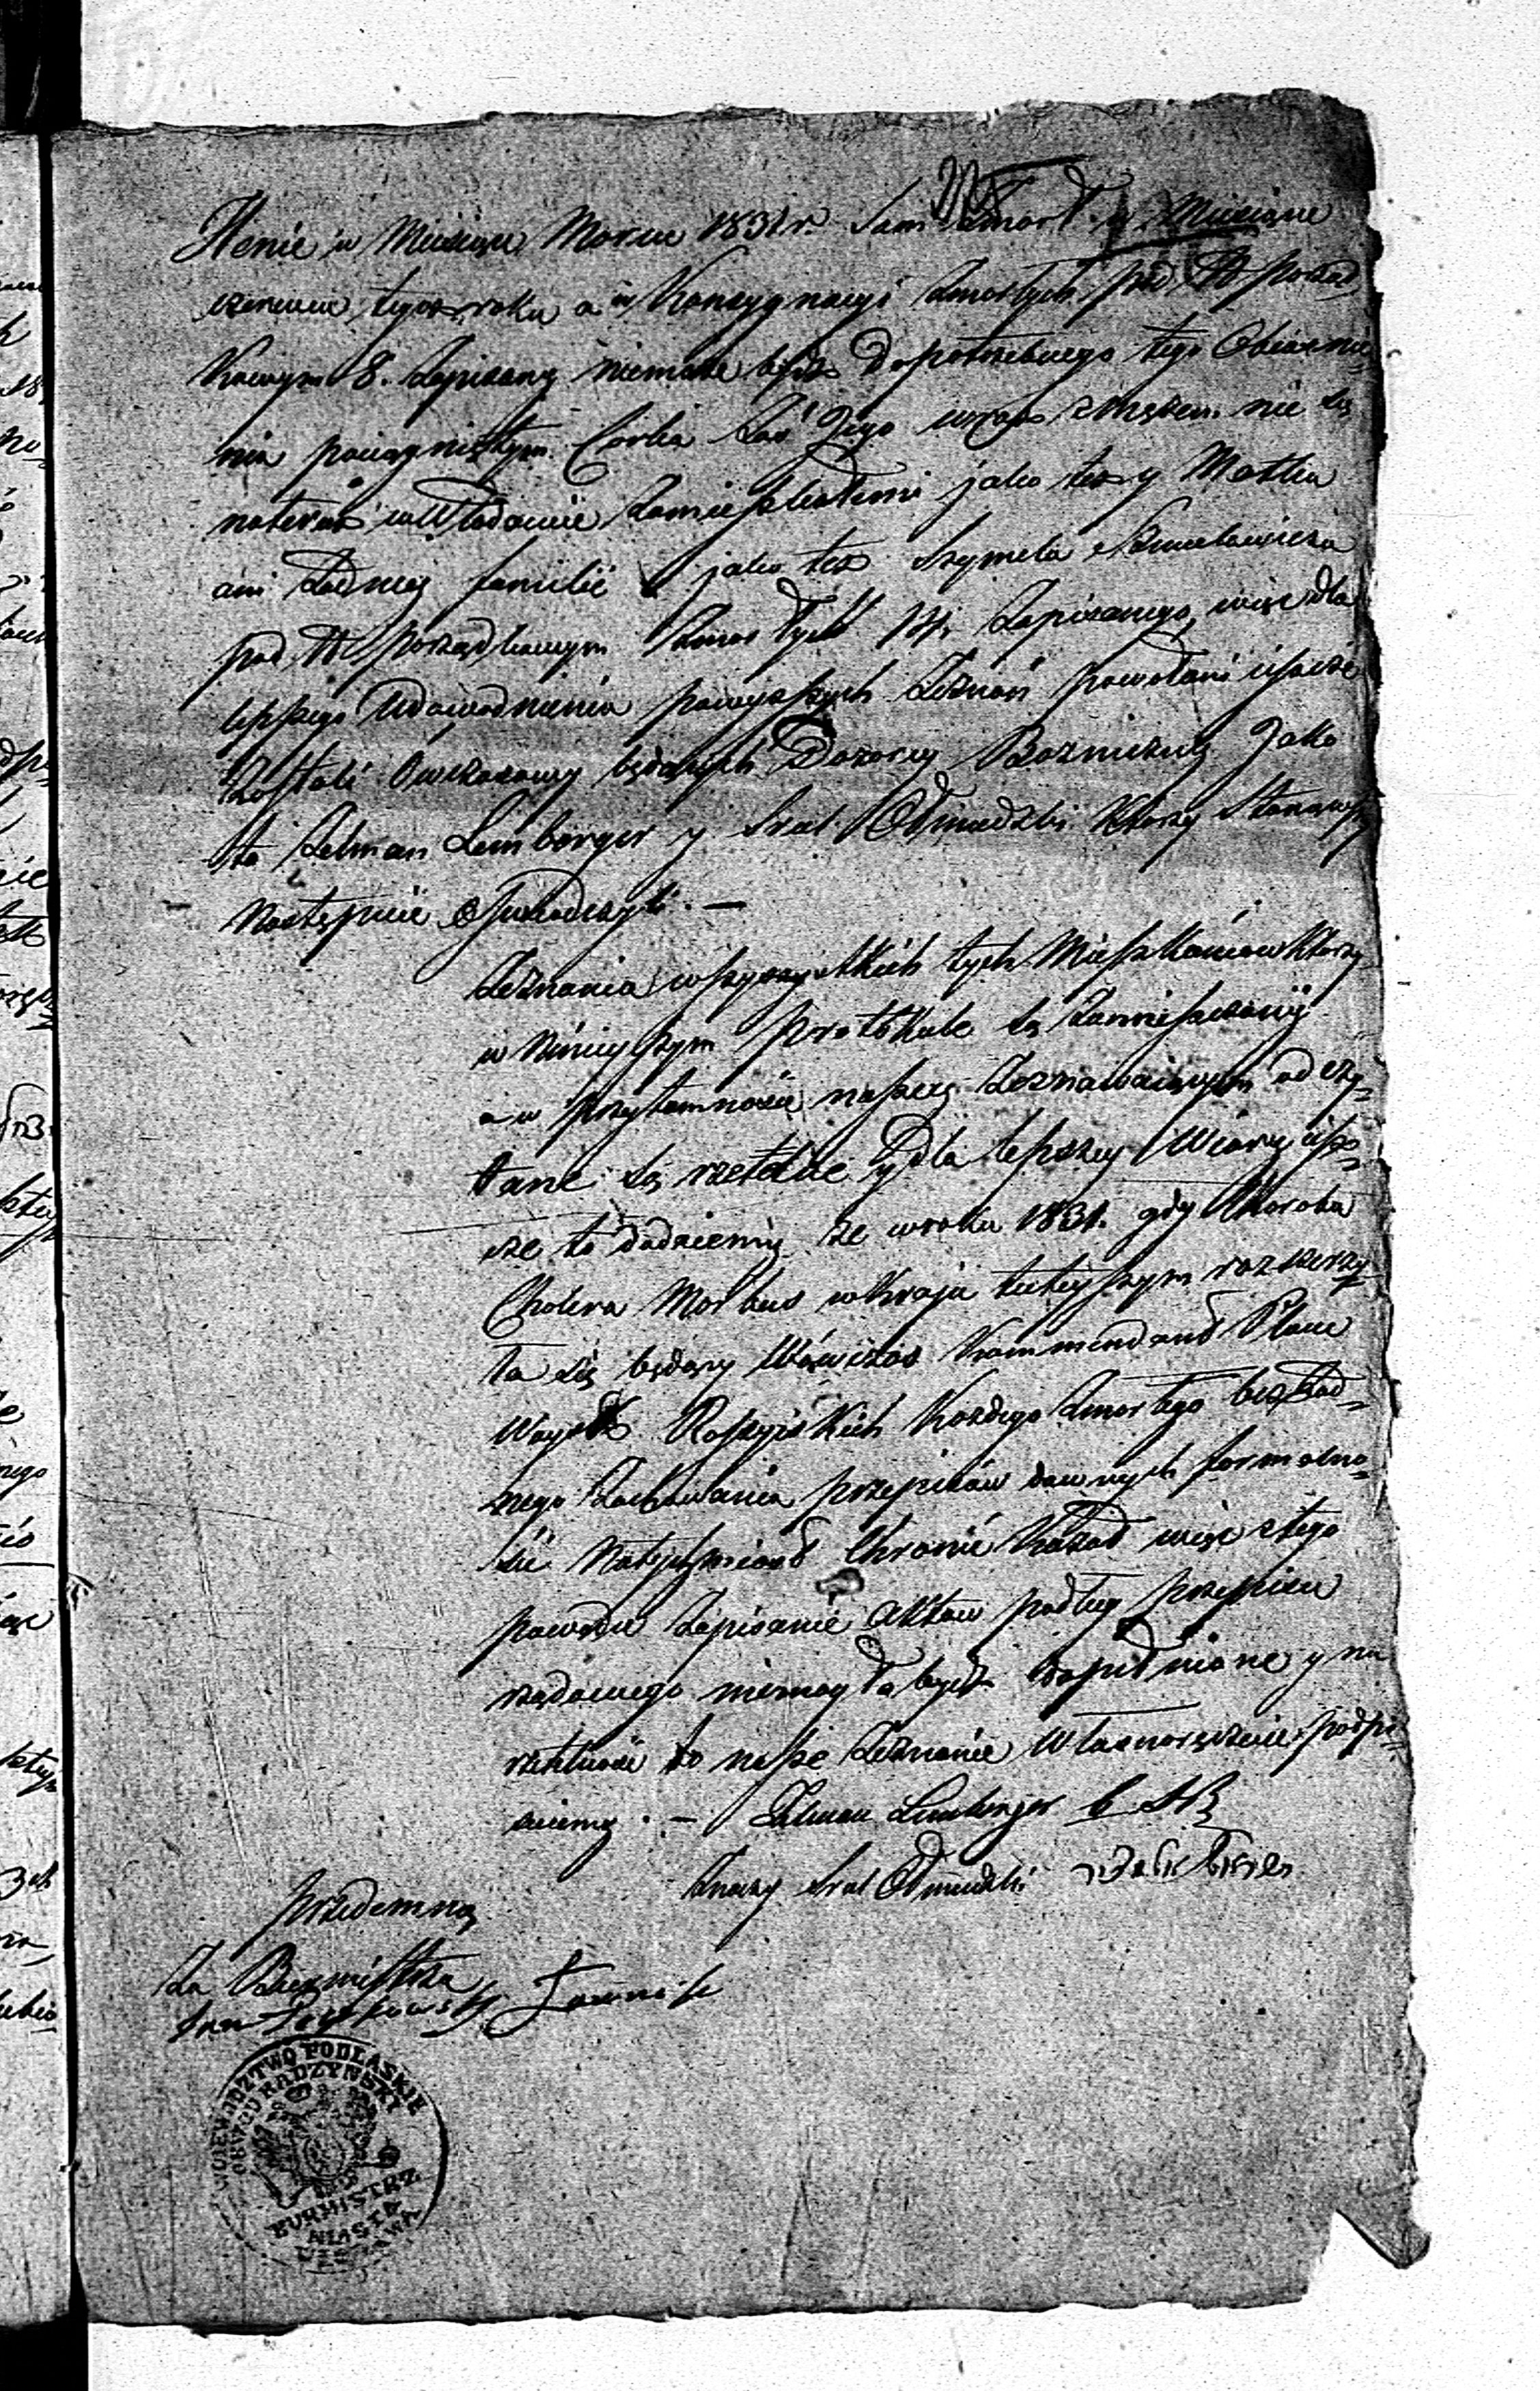 Henie w Miesiącu Marcu 1831 r. Sam zmarł w Miesiącu
czerwcu tegoż roku a w Konsygnacyi zmarłych pod N porząd
kowym 8. zapisany niemoże bydź do potrzebnego tego Obiaśnie
nia pociągniętym. Corka zaś Jego wraz z mężem nie są
na teraz w Włodawie zamieszkałemi jako też y Matka
ani żadney familii jako też Szymela Szmulowicza
pod N porządkowym zmarłych 14. zapisanego, więc dla
lepszego udowodnienia powyższych zeznań powołani ieszcze
zostali ówczasowy będących Dozorcy Bożniczni Jako
to Zelman Lemberger y Srul Ołmiedzki którzy stanąwszy
Następnie oświadczyli. —
Zeznania wszyszystkich tych Mieszkańców którzy
w ninieyszym protokule są zamieszczony
a w przytomności naszey zeznawaiącym odczy
tane są rzetelne y dla lepszey Wiary iesz
cze to dodaiemy że w roku 1831. gdy Choroba
Cholera Morbus w Kraju tuteyszym rozszerzy
ła się będący Wówczas Kommendant Placu
Woysk Rossyiskich każdego zmarłego bez żad
nego zachowania przepisów dawnych formalno
ści natychmiast Chronić kazał więc z tego
powodu zapisanie Aktów podług przepisu
rządowego niemogło bydź dopełnione y na
rzetelność to nasze zeznanie Własnoręcznie podpi
suiemy. — Zelman Lemberger
Srul Ołmiedzki
przedemną
Za Burmistrza
Jan Ławnik
WOJEWÓDZTWO PODLASKIE
OBWÓD RADZYŃSKI
BURMISTRZ
MIASTA